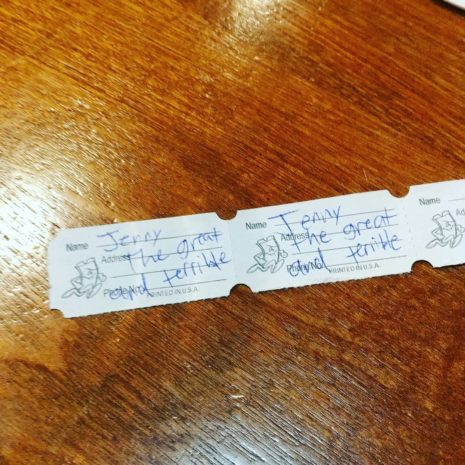 Name Jenny
Address the great
Phone No. and terrible
PRINTED IN U.S.A.
Name Jenny
Address the great
Phone No. and terrible
PRINTED IN U.S.A.
Name